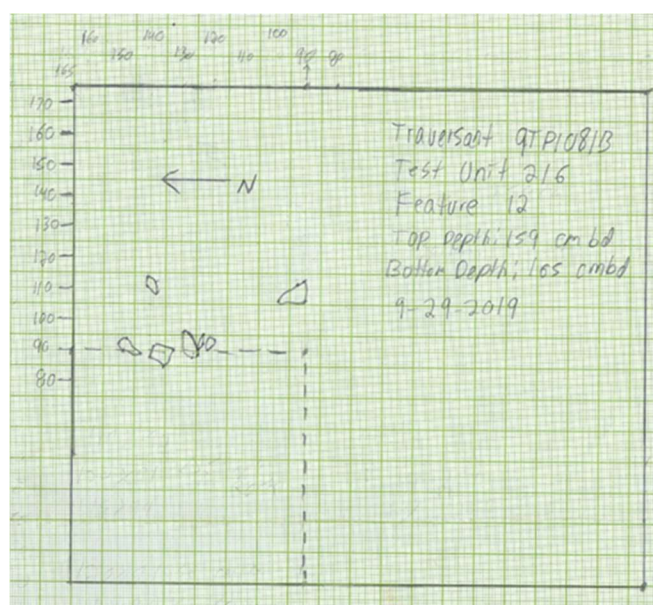 160 150 140 130 120 110 100 90 80
165
170
160
150
140
130
120
110
100
90
80
N
Traversant 9TP1081B
Test Unit 216
Feature 12
Top Depth: 159 cm bd
Bottom Depth: 165 cmbd
9-29-2019